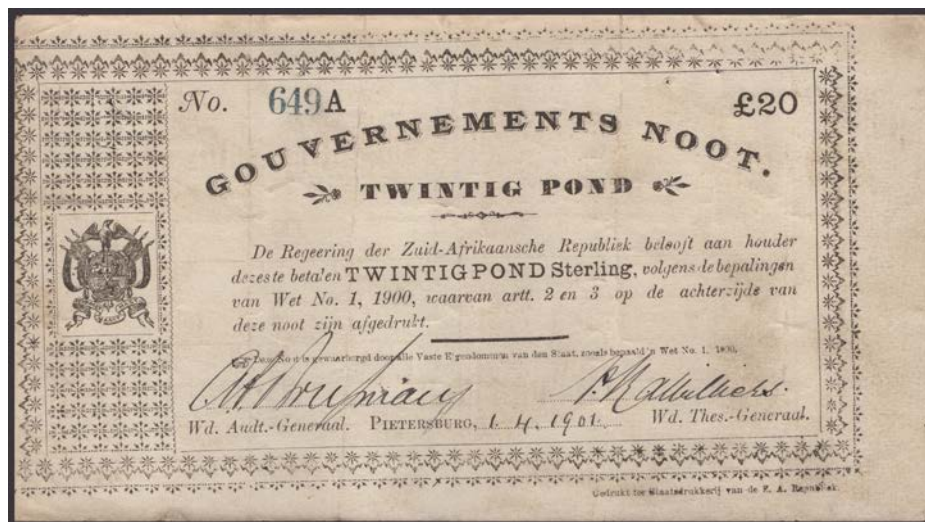 No. 649A £20
GOUVERNEMENTS NOOT.
TWINTIG POND
De Regeering der Zuid-Afrikaansche Republiek belooft aan houder
dezes te betalen TWINTIG POND Sterling, volgens de bepalingen
van Wet No. 1, 1900, waarvan artt. 2 en 3 op de achterzijde van
deze noot zijn afgedrukt.
is gewaarborgd door alle Vaste Eigendommen van den Staat, zooals bepaald in Wet No. 1, 1900.
Wd. Audt.-Generaal. PIETERSBURG, 1. 4. 1901. Wd. Thes.-Generaal.
Gedrukt ter Staatsdrukkerij van de Z. A. Republiek.